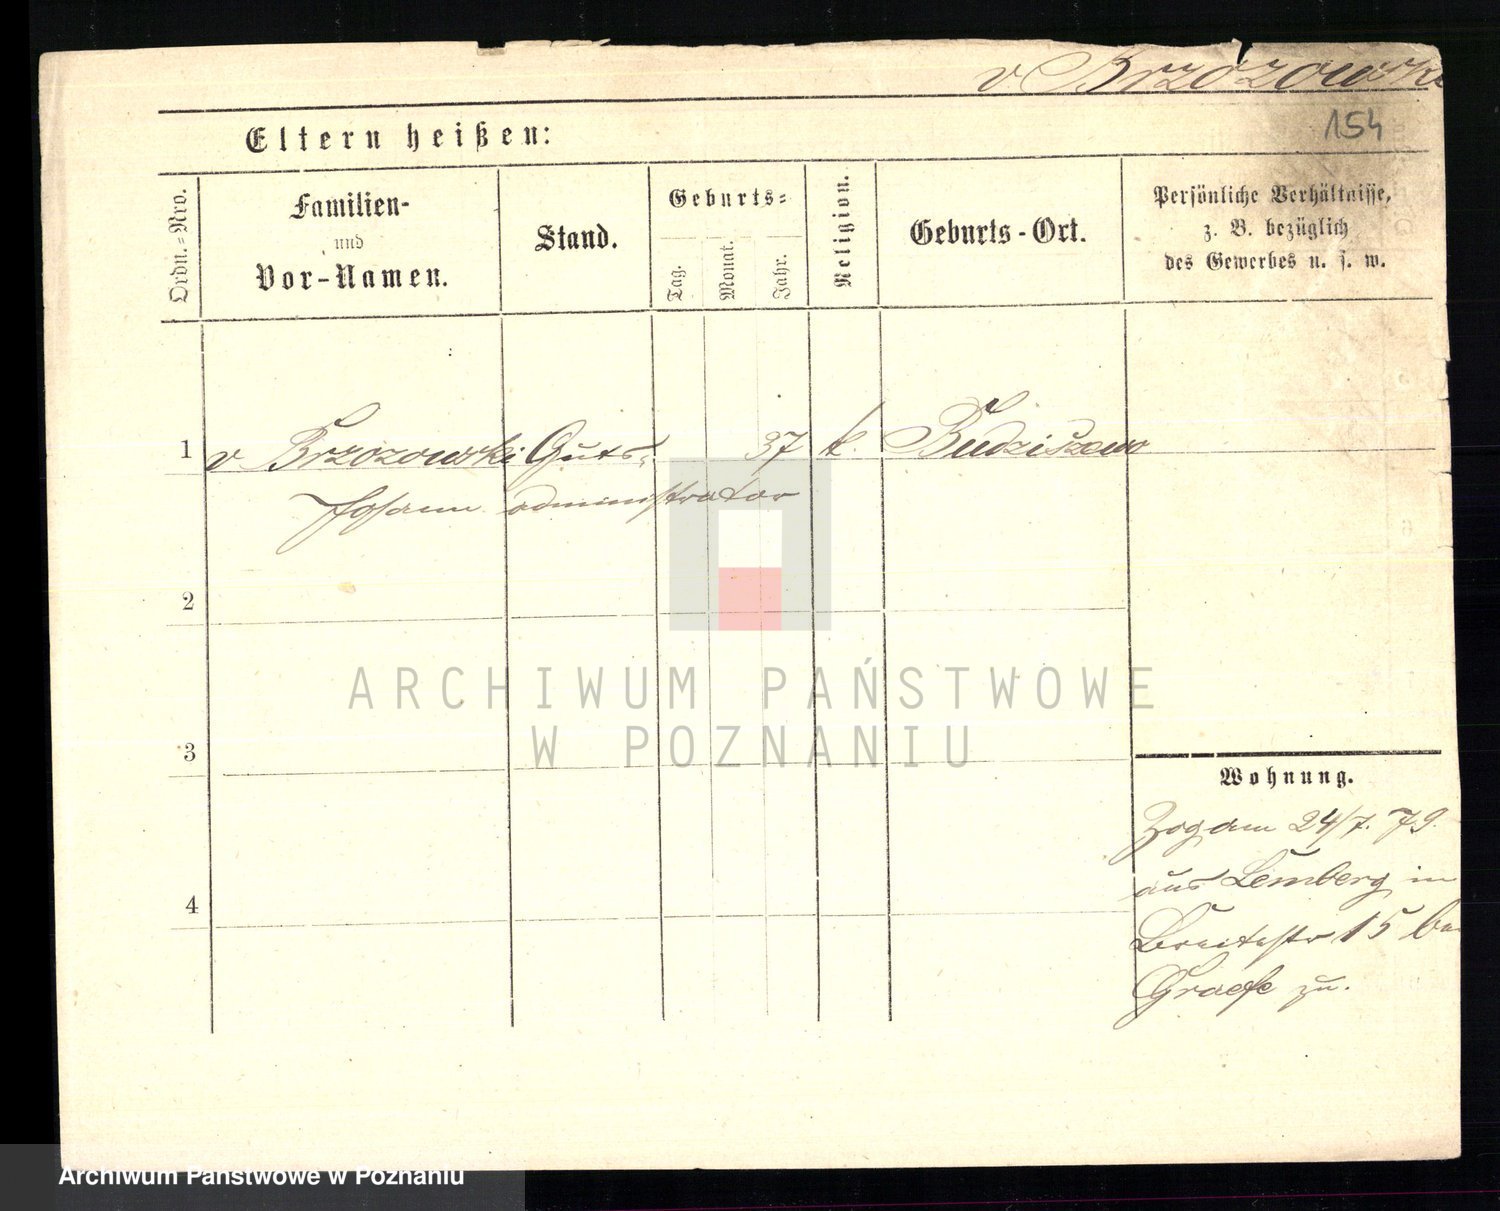 v Brzozowski
154
Eltern heißen:
Ordn.=Nro.
Familien-
und
Vor-Namen.
Stand.
Geburts=
Tag.
Monat.
Jahr.
Religion.
Geburts-Ort.
Persönliche Verhältnisse,
z. B. bezüglich
des Gewerbes u. s. w.
1 v Brzozowski Guts= 37 k. Budziszewo
Johann administrator
2
3
4
Wohnung.
Zog am 24/7. 79.
aus Lemberg in
Breitestr 15 bei
Graefe zu.
ARCHIWUM PAŃSTWOWE
W POZNANIU
Archiwum Państwowe w Poznaniu